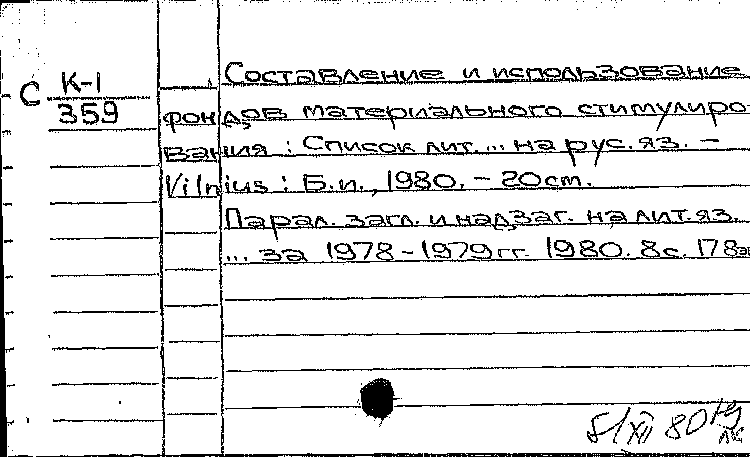 С К-1
359
Составление и использование
фондов материального стимулиро
вания : Список лит. ... на рус. яз. –
Vilnius : Б.и., 1980. – 20 cm.
Парал. загл. и надзаг. на лит. яз.
... за 1978-1979 гг. 1980. 8 с. 178 эк
5/XII 80